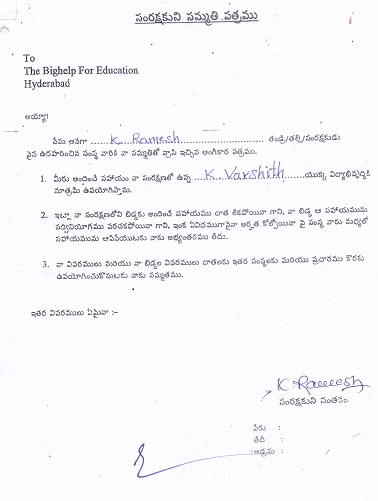 సంరక్షకుని సమ్మతి పత్రము
To
The Bighelp For Education
Hyderabad
అయ్యా!
నేను అనగా ....K. Ramesh............................ తండ్రి/తల్లి/సంరక్షకుడు
పైన ఉదహరించిన సంస్థ వారికి నా సమ్మతితో వ్రాసి ఇచ్చిన అంగీకార పత్రము.
1. మీరు అందించే సహాయం నా సంరక్షణలో ఉన్న ....K. Varshith......యొక్క విద్యాభివృద్ధికి
మాత్రమే ఉపయోగిస్తాము.
2. ఇట్లా నా సంరక్షణలోని బిడ్డకు అందించే సహాయము దాత లేకపోయినా గాని, నా బిడ్డ ఆ సహాయమును
సద్వినియోగము పరచకపోయినా గాని, ఇంక ఏవిధముగానైనా అర్హత కోల్పోయినా పై సంస్థ వారు మధ్యలో
సహాయమును ఆపివేయుటకు నాకు అభ్యంతరము లేదు.
3. నా వివరములు మరియు నా బిడ్డల వివరములు దాతలకు ఇతర సంస్థలకు మరియు ప్రచారము కొరకు
ఉపయోగించుకొనుటకు నాకు సమ్మతము.
ఇతర వివరములు ఏమైనా :-
K. Ramesh
సంరక్షకుని సంతకం
పేరు :
తేదీ :
అడ్రసు :